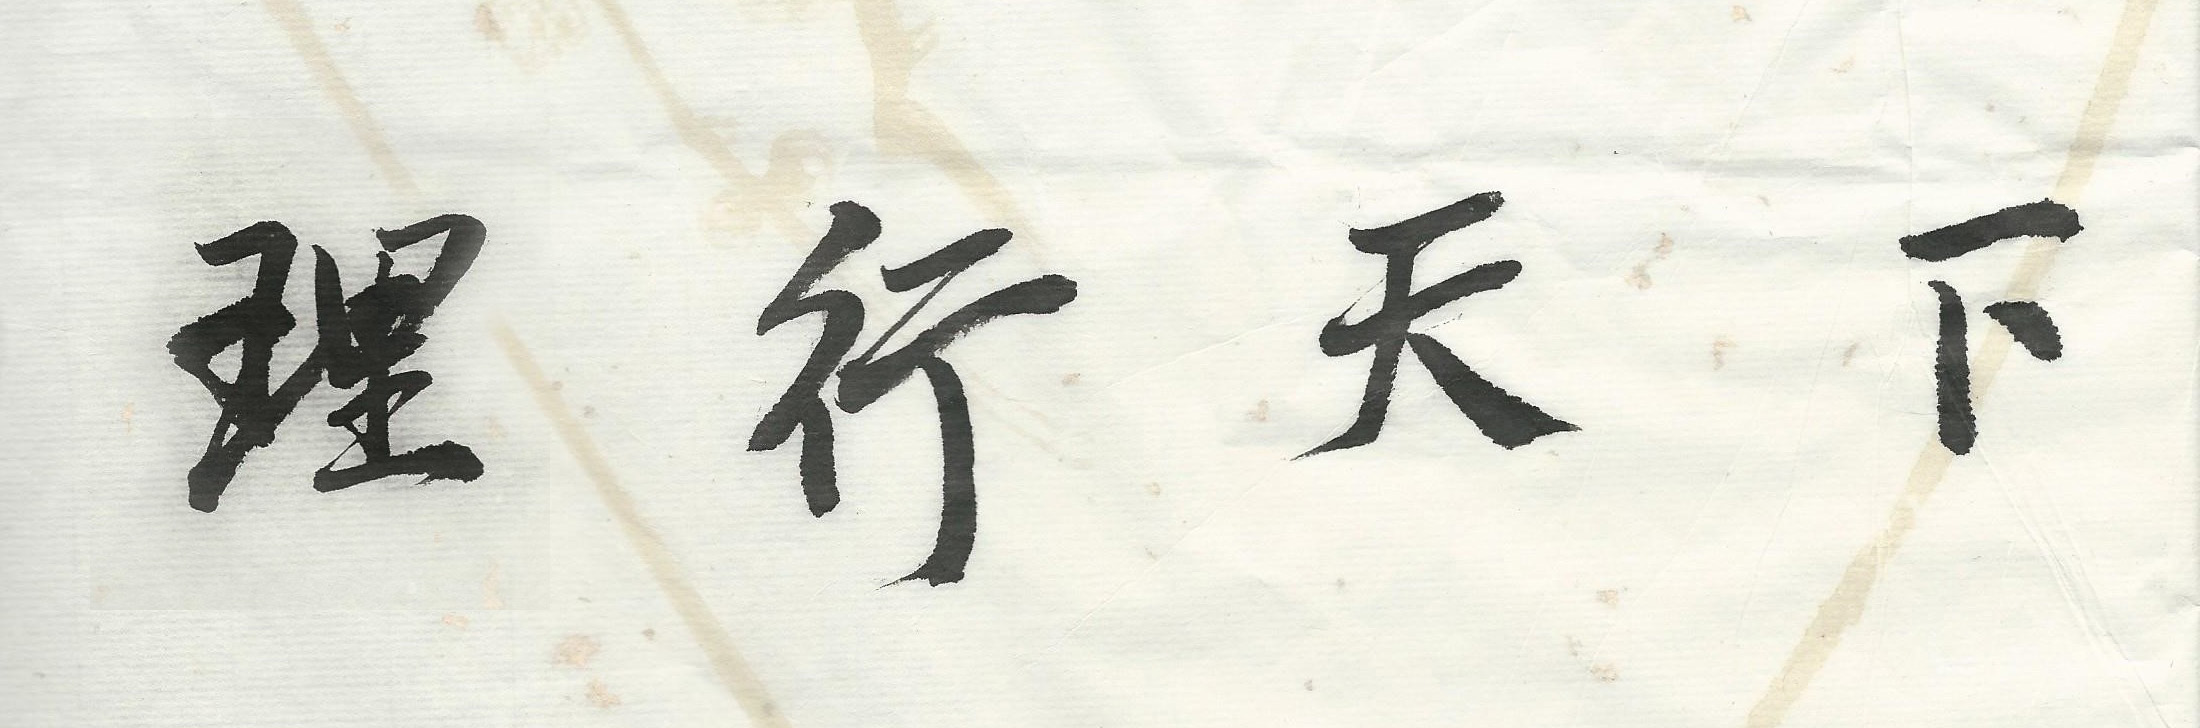 理行天下